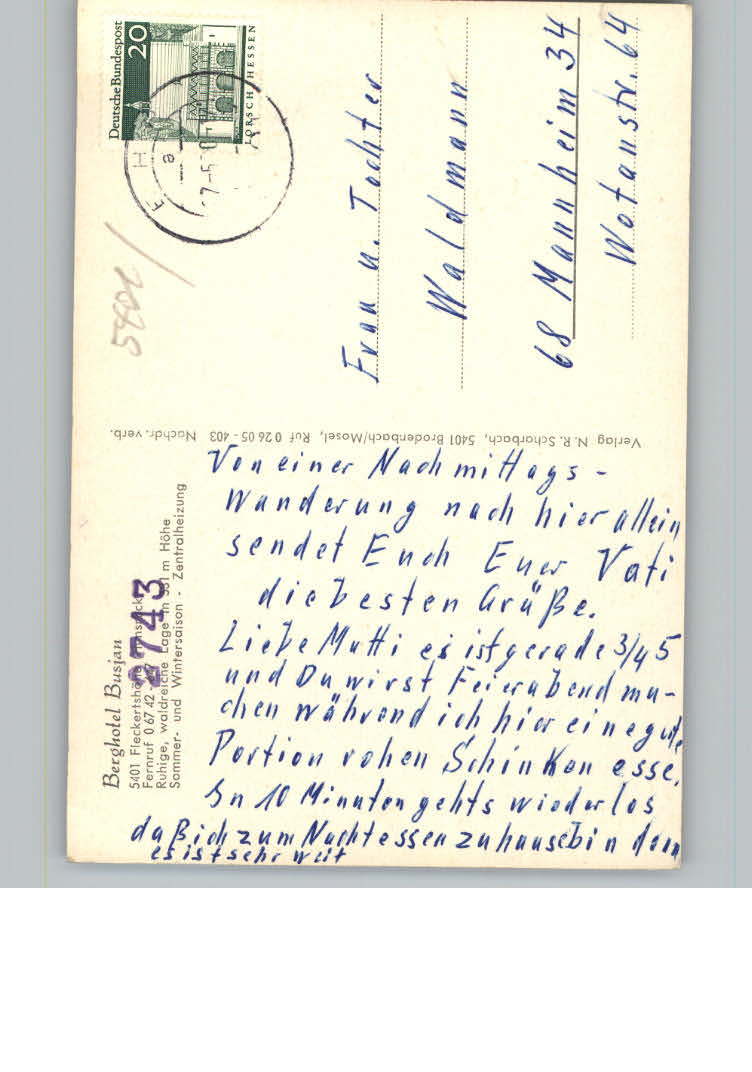 Berghotel Busjan
5401 Fleckertshöhe
Fernruf 0 67 42
Ruhige, waldreiche Lage in 531 m Höhe
Sommer- und Wintersaison - Zentralheizung
2743
Von einer Nachmittags-
wanderung nach hier allein
sendet Euch Euer Vati
die besten Grüße.
Liebe Mutti es ist gerade 3/4 5
und Du wirst Feierabend ma-
chen während ich hier eine gute
Portion rohen Schinken esse.
In 10 Minuten gehts wieder los
daß ich zum Nachtessen zuhause bin denn
es ist sehr weit
Verlag N. R. Scharbach, 5401 Brodenbach/Mosel, Ruf 0 26 05 - 403 Nachdr. verb.
5401
Deutsche Bundespost
20
LORSCH/HESSEN
Frau u. Tochter
Waldmann
68 Mannheim 34
Wotanstr. 64